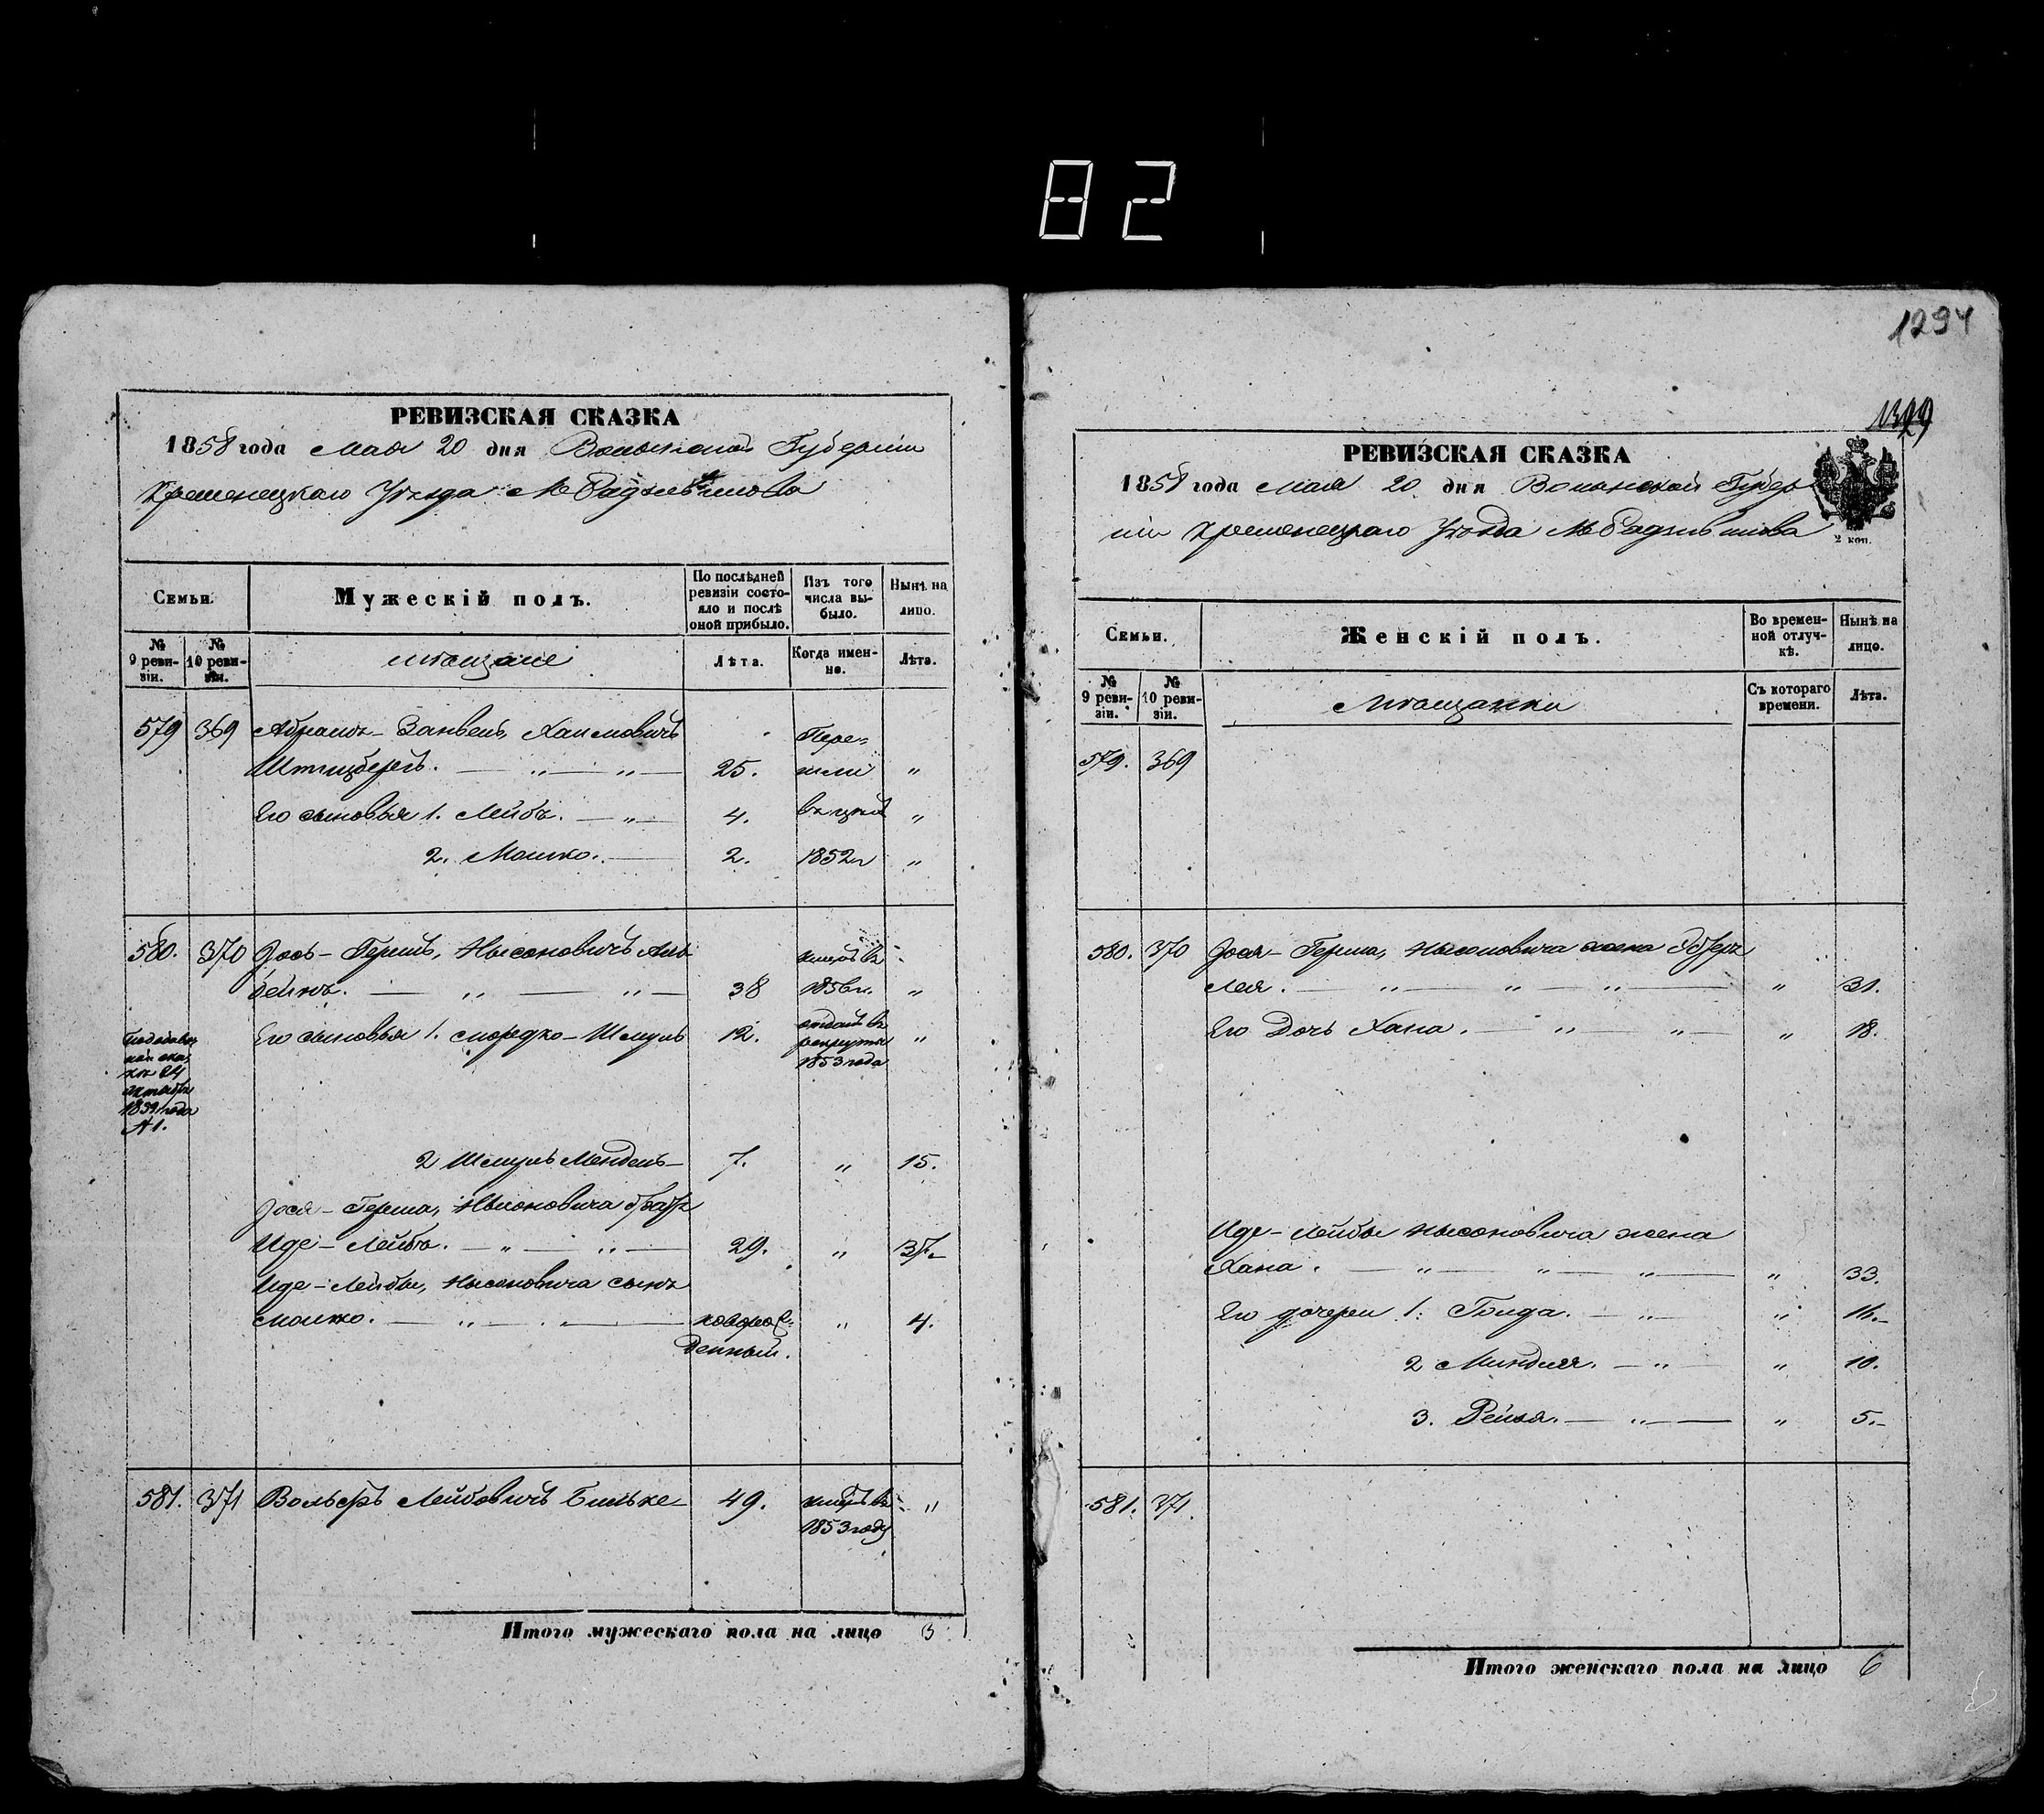 82
1294
РЕВИЗСКАЯ СКАЗКА
1858 года Мая 20 дня Волынской Губернии
Кременецкаго Уезда М Радзивилова
Семьи.
Мужескій полъ.
По послѣдней ревизіи состояло и послѣ оной прибыло.
Изъ того числа выбыло.
Нынѣ на лицо.
№ 9 ревизіи.
№ 10 ревизіи.
мѣщане
Лѣта.
Когда именно.
Лѣта.
579 369 Абрамъ-Занвель, Хаимовичъ Пере-
Штицберъ. — „ — „ — 25. шли „
Его сыновья 1. Лейбъ. — „ — 4. въ цехъ „
2. Мошко. — 2. 1852 „
580. 370 Іось-Гершъ, Нысоновичъ Аль умеръ въ
бейнъ. — „ — „ — 38 1856 г. „
Его сыновья 1. Мордко-Шмуль 12. отданъ въ рекруты 1853 года „
1839 года
№ 1.
2 Шмуль Мендель — 7. „ 15.
Іося-Герша, Нысоновича братъ
Иде-Лейбъ. — „ — „ — 29. „ 37.
Иде-Лейбы, Нысоновича сынъ
Мошко. — „ — новорож- „ 4.
денный.
581. 371 Вольфъ Лейбовичъ Бильке — 49. умеръ въ „
1853 году
Итого мужескаго пола на лицо 3
РЕВИЗСКАЯ СКАЗКА
1858 года Мая 20 дня Волынской Губер
ніи Кременецкаго Уезда М Радзивилова
2 коп.
Семьи.
Женскій полъ.
Во временной отлучкѣ.
Нынѣ на лицо.
№ 9 ревизіи.
№ 10 ревизіи.
Мѣщанки
Съ котораго времени.
Лѣта.
579. 369
580. 370 Іося-Герша, Нысоновича жена Эстеръ
Лея. — „ — „ — „ — „ 31.
Его Дочь Хана. — „ — „ — „ 18.
Иде-Лейбы Нысоновича жена
Хана. — „ — „ — „ — „ 33.
Его дочери 1. Гольда. — „ — „ 16.
2 Миндля. — „ „ 10.
3. Рейзя. — „ — „ 5.
581. 371.
Итого женскаго пола на лицо 6